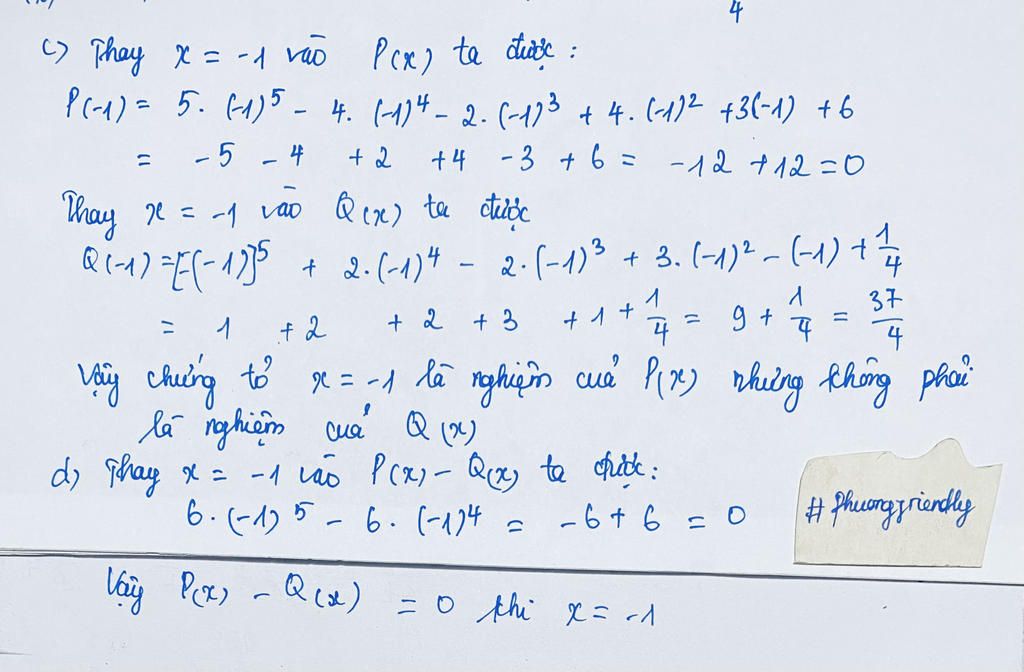 4
c) Thay x = -1 vào P(x) ta được :
P(-1) = 5. (-1)^5 - 4. (-1)^4 - 2. (-1)^3 + 4. (-1)^2 + 3(-1) + 6
= -5 - 4 + 2 + 4 - 3 + 6 = -12 + 12 = 0
Thay x = -1 vào Q(x) ta được
Q(-1) = [-(-1)]^5 + 2.(-1)^4 - 2.(-1)^3 + 3.(-1)^2 - (-1) + 1/4
= 1 + 2 + 2 + 3 + 1 + 1/4 = 9 + 1/4 = 37/4
Vậy chứng tỏ x = -1 là nghiệm của P(x) nhưng không phải
là nghiệm của Q(x)
d) Thay x = -1 vào P(x) - Q(x) ta được :
6. (-1)^5 - 6. (-1)^4 = -6 + 6 = 0
# phuongfriendly
Vậy P(x) - Q(x) = 0 khi x = -1